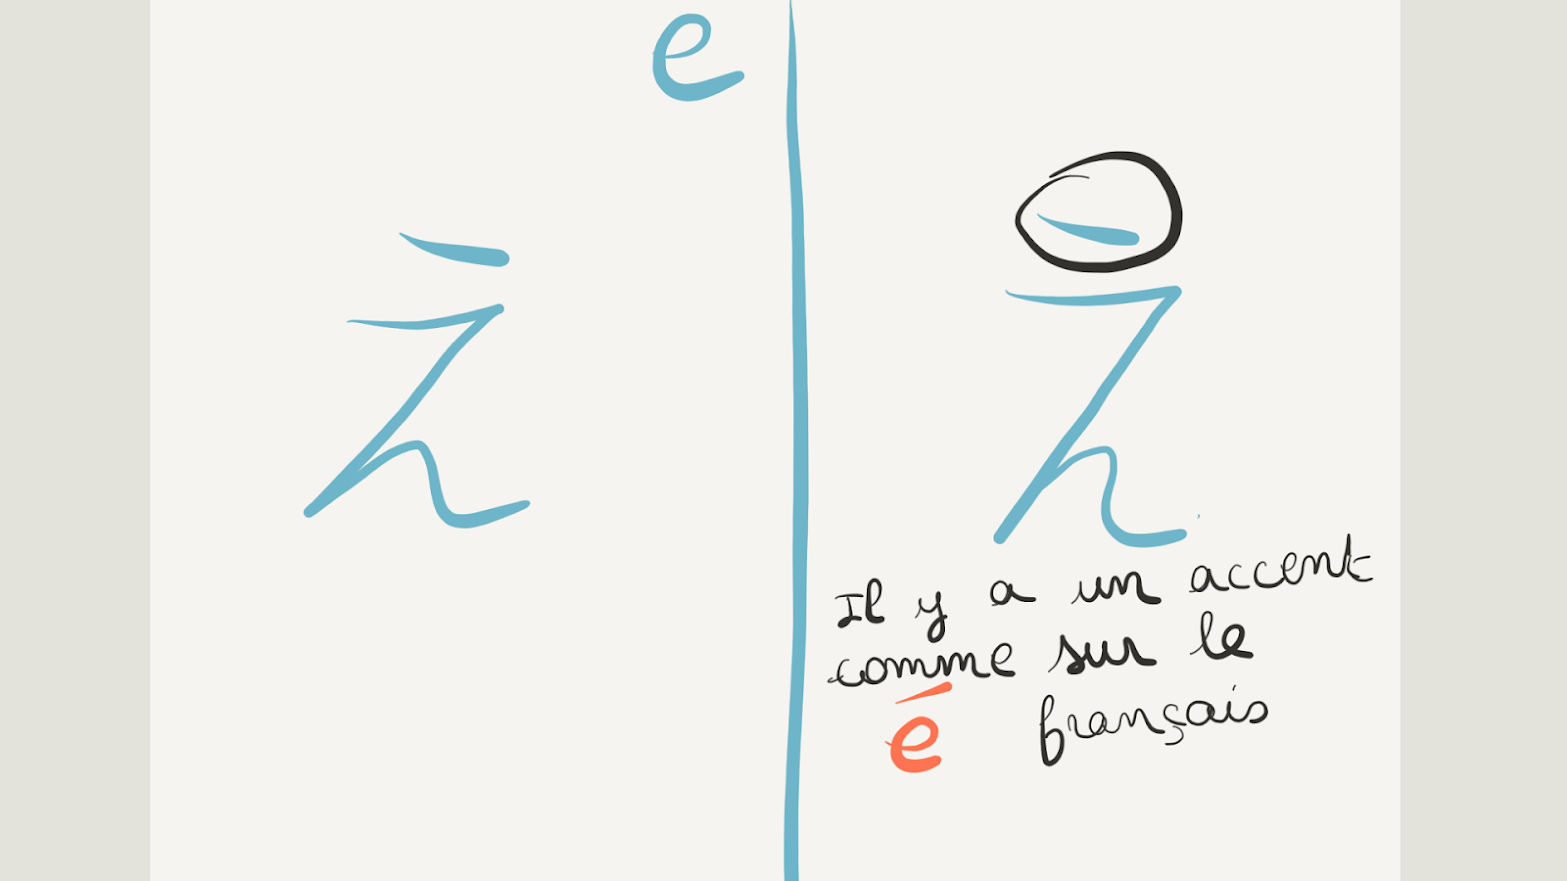 e
え
え
Il y a un accent
comme sur le
é français